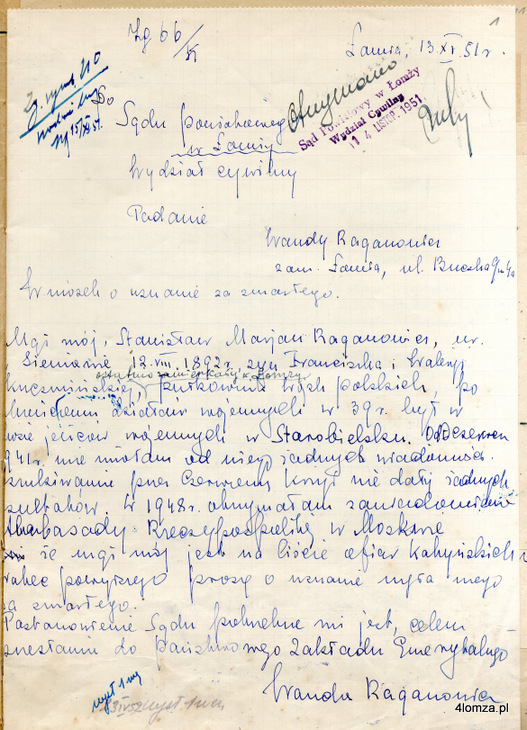 1
Zg 66/51
Łomża, 13.XI.51r.
Do
Otrzymano
Sąd Powiatowy w Łomży
Wydział Cywilny
14 LISTOP. 1951
Sądu Powiatowego
w Łomży
Wydział cywilny
Podanie
Wandy Raganowicz
zam. Łomża, ul.
Wniosek o uznanie za zmarłego.
Mąż mój, Stanisław Marjan Raganowicz, ur.
Siemianie 12.VIII.1892r. syn Franciszka i Walerji
ostatnio zamieszkały w Łomży
pułkownik wojsk polskich, po
działań wojennych w 39r. był w
jeńców wojennych w Starobielsku. Od czerwca
941r. nie miałam od niego żadnych wiadomości.
przez Czerwony Krzyż nie dały żadnych
W 1948r. otrzymałam zawiadomienie
Ambasady Rzeczypospolitej w Moskwie
że mąż mój jest na liście ofiar katyńskich
wobec powyższego proszę o uznanie męża mego
za zmarłego.
Postanowienie Sądu potrzebne mi jest, celem
do Państwowego Zakładu Emerytalnego
Wanda Raganowicz
4lomza.pl